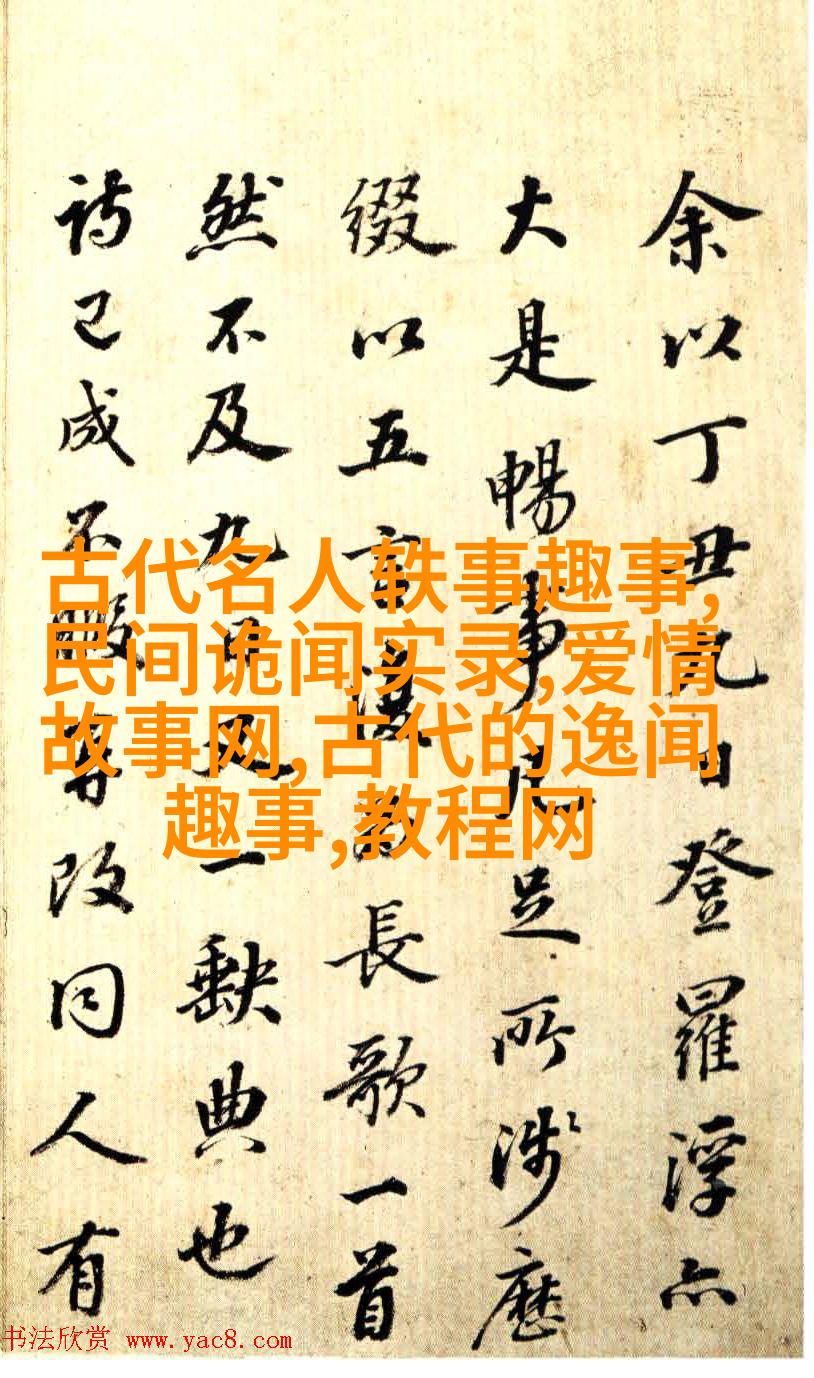 余以丁丑九日登羅浮亦
大是暢事凡足所涉歷
綴以五言漫為長歌一首
然不及九日又一缺典也
詩已成不暇再改同人有
古代名人轶事趣事,
民间诡闻实录,爱情
故事网,古代的逸闻
趣事,教程网
书法欣赏 www.yac8.com